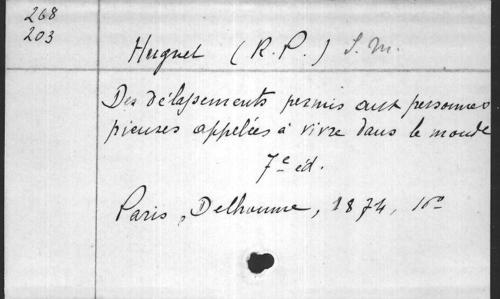 268
203
Huguet (R.P.) S. M.
Des délassements permis aux personnes
pieuses appelées à vivre dans le monde
7e éd.
Paris, Delhomme, 1874, 16o